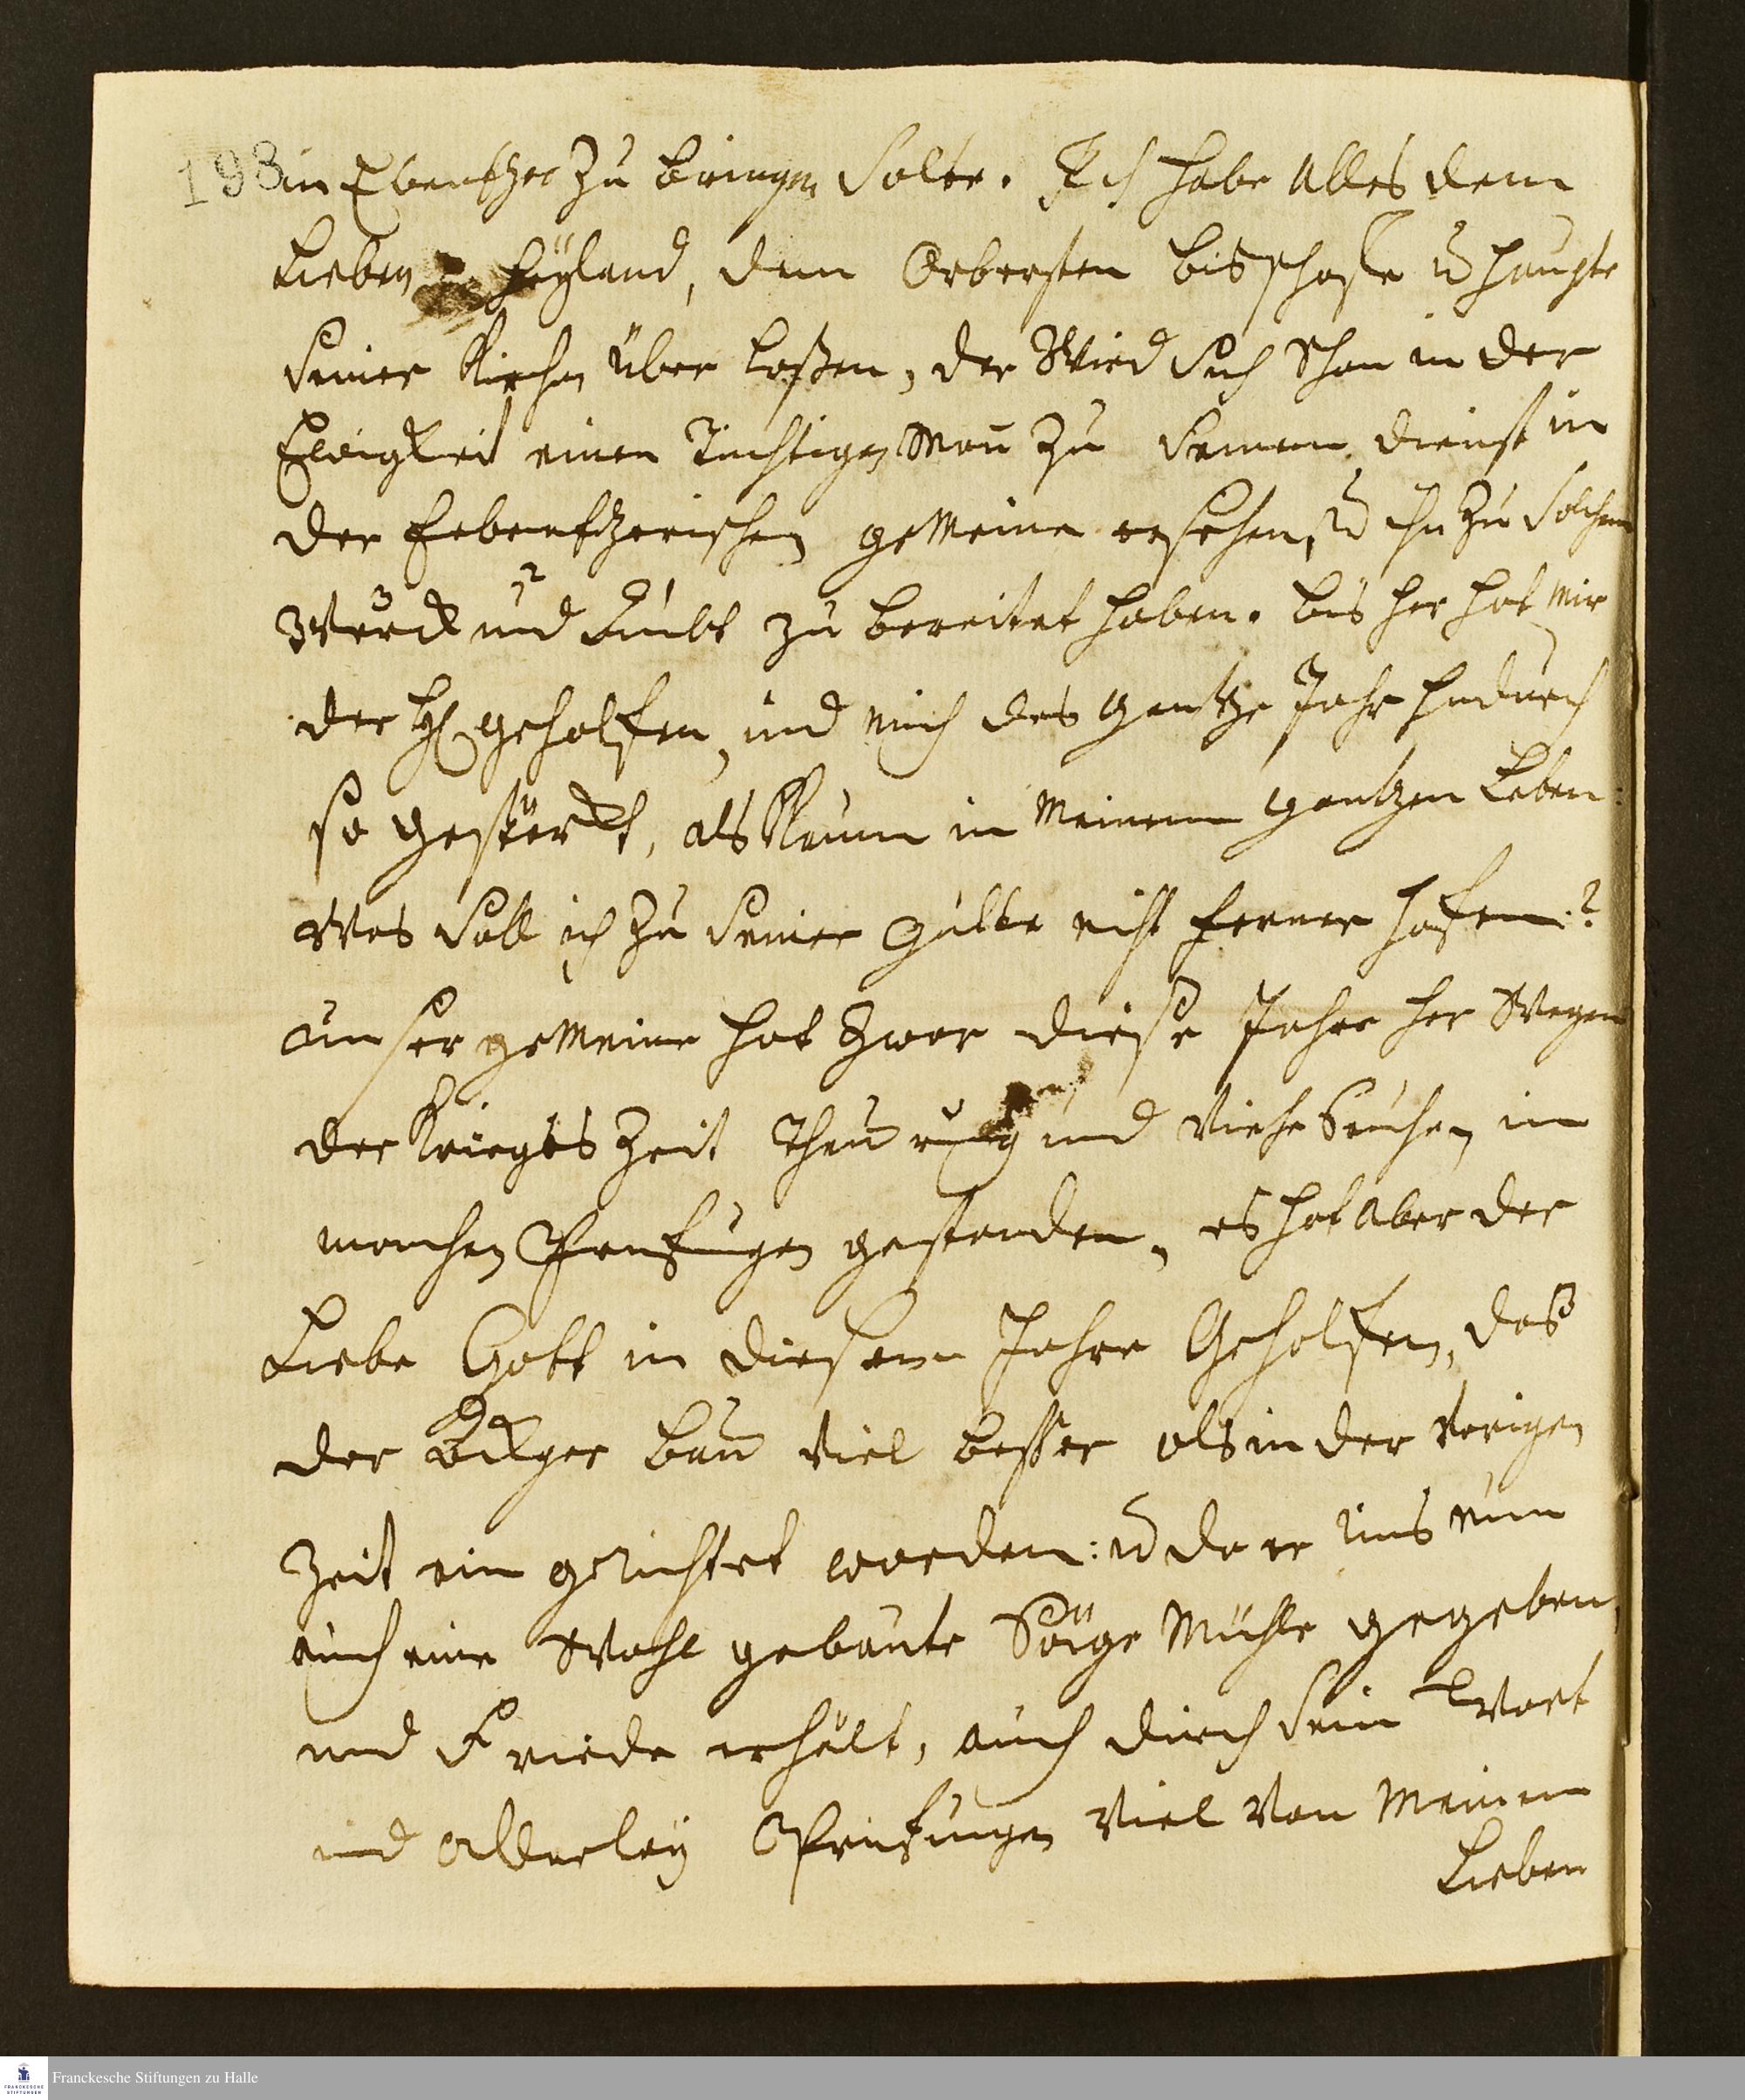 198
in Ebenetzer zu bringen solte. Ich habe alles dem
Lieben Heÿland, dem Oerbersten bisschoffe u haupte
seiner Kirchen über loßen, der Wird sich schon in der
Ewigkeit einen Tüchtigen Man zu seinem dienst in
der Eebenetzerischen gemeine ersehen, u ihn zu solchem
Werck und Ambt zu bereitet haben. bis her hat mir
der HErr geholffen, und mich das gantze Jahr hindurch
so gestärckt, als Kaum in Meinem gantzen Leben:
Was soll ich zu seiner Gütte nicht ferner hoffen?
Unser gemeine hat zwar diese Jahre her Wegen
der Kriegs Zeit Theurung und Viehe Seuchen in
manchen Prufungen gestanden, es hat aber der
Liebe Gott in diesem Jahre Geholffen, daß
der Acker bau Viel besser als in der Vorigen
Zeit ein gerichtet worden: u da er Uns nun
auch eine Wohl gebaute Säge Mühle gegeben,
und Friede erhält, auch durch sein Wort
und allerleÿ Prüfungen Viel Von Meinem
Lieben
Franckesche Stiftungen zu Halle